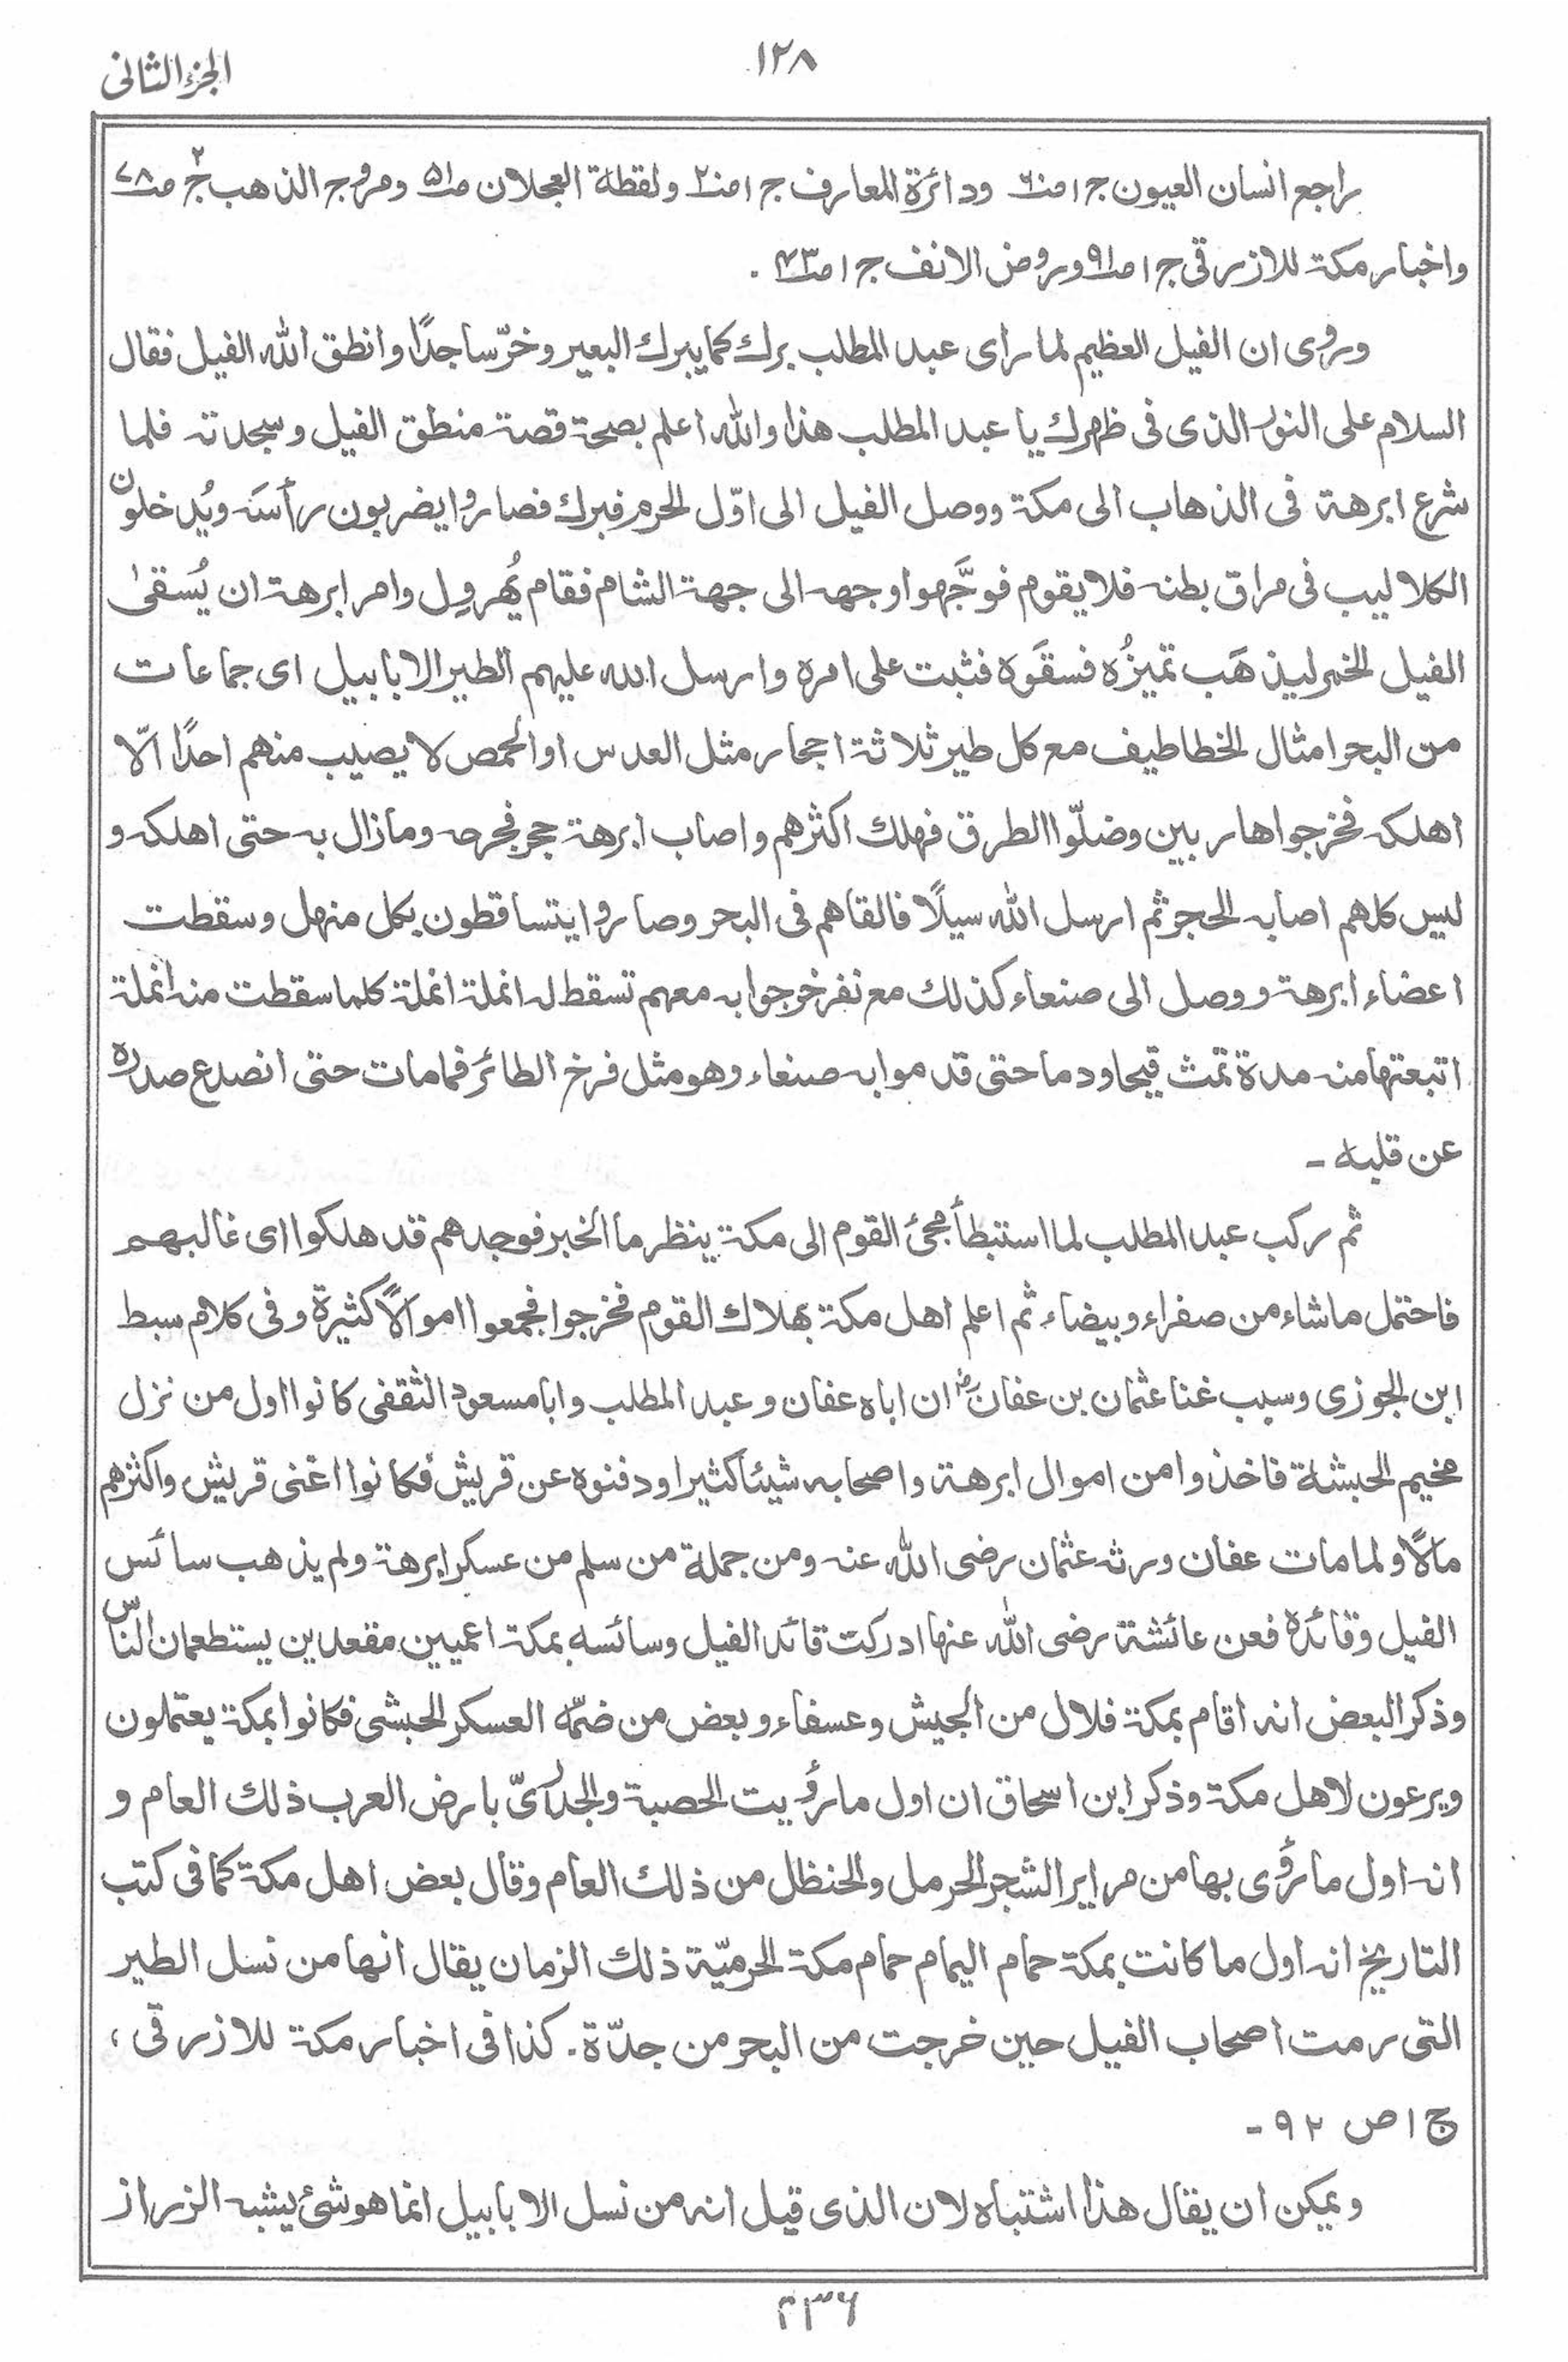 الجزء الثانی
١٢٨
راجع انسان العيون ج ١ ص٦٠ ودائرة المعارف ج ١ ص٢٠ ولقطة العجلان ص٥١ ومروج الذهب ج ٢ ص٧٨
واخبار مكة للازرقی ج ١ ص٩١ وروض الانف ج ١ ص٤٣ .
وروی ان الفیل العظیم لما رای عبد المطلب برك كما یبرك البعیر وخرّ ساجدًا وانطق الله الفیل فقال
السلام علی النور الذی فی ظهرك یا عبد المطلب هذا والله اعلم بصحة قصة منطق الفیل وسجدته فلما
شرع ابرهة فی الذهاب الی مكة ووصل الفیل الی اوّل الحرم فبرك فصاروا یضربون رأسَه ویُدخلون
الكلالیب فی مراق بطنه فلا یقوم فوجَّهوا وجهه الی جهة الشام فقام یُهرول وامر ابرهة ان یُسقیٰ
الفیل الخمر لیذهَب تمیزُه فسقَوه فثبت علی امره وارسل الله علیهم الطیر الابابیل ای جماعات
من البحر امثال الخطاطیف مع كل طیر ثلاثة احجار مثل العدس او الحمص لا یصیب منهم احدًا الّا
اهلكه فخرجوا هاربین وضلّوا الطرق فهلك اكثرهم واصاب ابرهة حجر فجرحه ومازال به حتی اهلكه و
لیس كلهم اصابه الحجر ثم ارسل الله سیلًا فالقاهم فی البحر وصاروا یتساقطون بكل منهل وسقطت
اعضاء ابرهة ووصل الی صنعاء كذلك مع نفر خرجوا به معهم تسقط له انملة انملة كلما سقطت منه انملة
اتبعتها منه مدة تمث قیحا ودما حتی قدموا به صنعاء وهو مثل فرخ الطائر فما مات حتی انصدع صدره
عن قلبه ـ
ثم ركب عبد المطلب لما استبطأ مجئ القوم الی مكة ینظر ما الخبر فوجدهم قد هلكوا ای غالبهم
فاحتمل ما شاء من صفراء وبیضاء ثم اعلم اهل مكة بهلاك القوم فخرجوا فجمعوا اموالًا كثیرة وفی كلام سبط
ابن الجوزی وسبب غنا عثمان بن عفانؓ ان اباه عفان وعبد المطلب وابا مسعود الثقفی كانوا اول من نزل
مخیم الحبشة فاخذوا من اموال ابرهة واصحابه شیئا كثیرا ودفنوه عن قریش فكانوا اغنی قریش واكثرهم
مالًا ولما مات عفان ورثه عثمان رضی الله عنه ومن جملة من سلم من عسكر ابرهة ولم یذهب سائس
الفیل وقائده فعن عائشة رضی الله عنها ادركت قائد الفیل وسائسه بمكة اعمیین مقعدین یستطعمان الناس
وذكر البعض انه اقام بمكة فلال من الجیش وعسفاء وبعض من ضمّه العسكر الحبشی فكانوا بمكة یعتملون
ویرعون لاهل مكة وذكر ابن اسحاق ان اول ما رُؤیت الحصبة والجدری بارض العرب ذلك العام و
انه اول ما رُؤی بها من مرایر الشجر الحرمل والحنظل من ذلك العام وقال بعض اهل مكة كما فی كتب
التاریخ انه اول ما كانت بمكة حمام الیمام حمام مكة الحرمیّة ذلك الزمان یقال انها من نسل الطیر
التی رمت اصحاب الفیل حین خرجت من البحر من جدّة. كذا فی اخبار مكة للازرقی ،
ج ١ ص ٩٢ ـ
ویمكن ان یقال هذا اشتباه لان الذی قیل انه من نسل الابابیل انما هو شئ یشبه الزراز